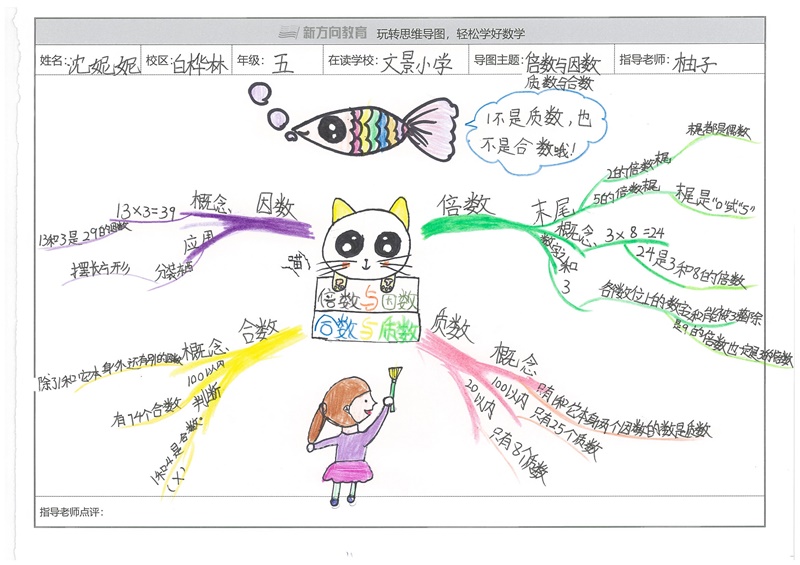 新方向教育 玩转思维导图，轻松学好数学
姓名：沈妮妮 校区：白桦林 年级：五 在读学校：文景小学 导图主题：倍数与因数 指导老师：柚子
质数与合数
1不是质数，也
不是合数哦！
喵
倍数与因数
合数与质数
因数
概念
13×3=39
13和3是29的因数
应用
分装东西
摆长方形
倍数
末尾
2的倍数尾
末尾都是偶数
5的倍数尾
末尾是"0"或"5"
概念
3×8=24
24是3和8的倍数
数字之
和
3
各个数位上的数字和能被3整除
是9的倍数也一定是3的倍数
合数
概念
除了1和它本身外还有别的因数
100以内
有74个合数
判断
1和4是合数
(×)
质数
概念
只有1和它本身两个因数的数是质数
100以内
只有25个质数
20
以内
只有8个质数
指导老师点评：